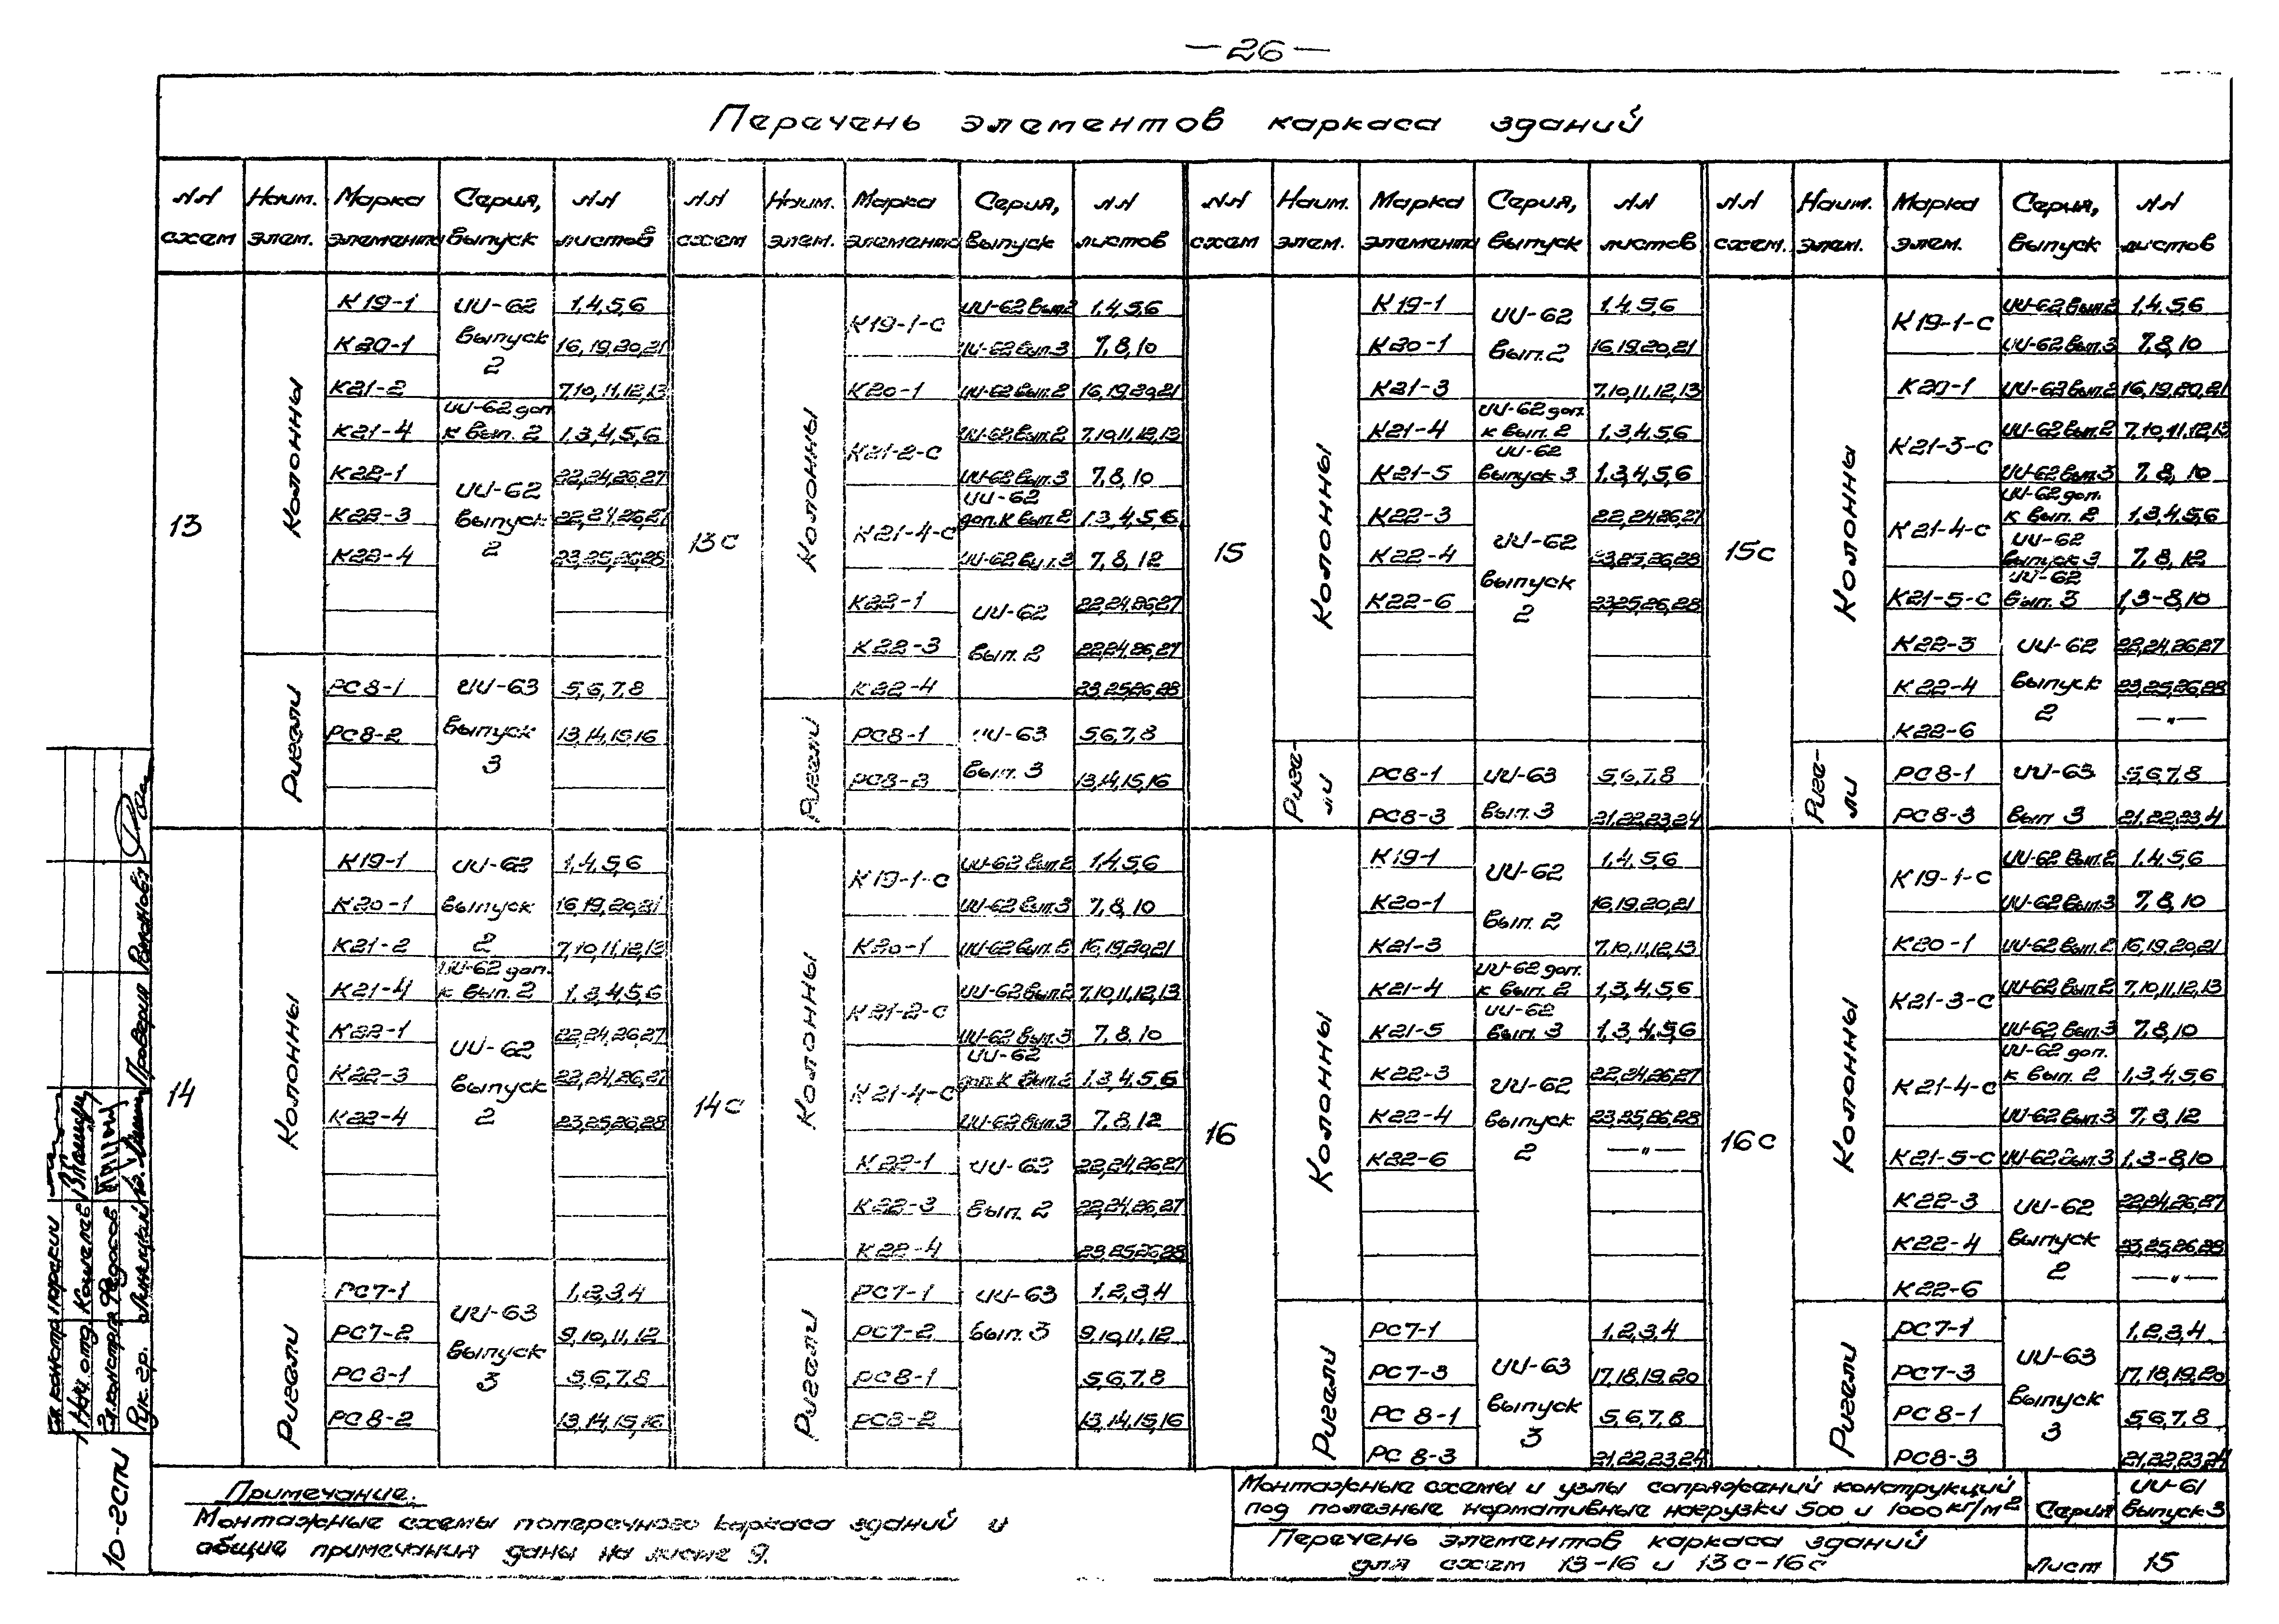 — 26 —
Перечень элементов каркаса зданий
NN схем | Наим. элем. | Марка элемента | Серия, выпуск | NN листов
13 | Колонны | К19-1 | ИИ-62 выпуск 2 | 1,4,5,6
К20-1 | 16,19,20,21
К21-2 | 7,10,11,12,13
К21-4 | ИИ-62 доп. к вып. 2 | 1,3,4,5,6
К22-1 | ИИ-62 выпуск 2 | 22,24,26,27
К22-3 | 22,24,26,27
К22-4 | 23,25,26,28
Ригели | РС8-1 | ИИ-63 выпуск 3 | 5,6,7,8
РС8-2 | 13,14,15,16
14 | Колонны | К19-1 | ИИ-62 выпуск 2 | 1,4,5,6
К20-1 | 16,19,20,21
К21-2 | 7,10,11,12,13
К21-4 | ИИ-62 доп. к вып. 2 | 1,3,4,5,6
К22-1 | ИИ-62 выпуск 2 | 22,24,26,27
К22-3 | 22,24,26,27
К22-4 | 23,25,26,28
Ригели | РС7-1 | ИИ-63 выпуск 3 | 1,2,3,4
РС7-2 | 9,10,11,12
РС8-1 | 5,6,7,8
РС8-2 | 13,14,15,16
NN схем | Наим. элем. | Марка элемента | Серия, выпуск | NN листов
13с | Колонны | К19-1-с | ИИ-62 вып.2 | 1,4,5,6
ИИ-62 вып.3 | 7,8,10
К20-1 | ИИ-62 вып.2 | 16,19,20,21
К21-2-с | ИИ-62 вып.2 | 7,10,11,12,13
ИИ-62 вып.3 | 7,8,10
К21-4-с | ИИ-62 доп. к вып.2 | 1,3,4,5,6
ИИ-62 вып.3 | 7,8,12
К22-1 | ИИ-62 вып. 2 | 22,24,26,27
К22-3 | 22,24,26,27
К22-4 | 23,25,26,28
Ригели | РС8-1 | ИИ-63 вып. 3 | 5,6,7,8
РС8-2 | 13,14,15,16
14с | Колонны | К19-1-с | ИИ-62 вып.2 | 1,4,5,6
ИИ-62 вып.3 | 7,8,10
К20-1 | ИИ-62 вып.2 | 16,19,20,21
К21-2-с | ИИ-62 вып.2 | 7,10,11,12,13
ИИ-62 вып.3 | 7,8,10
К21-4-с | ИИ-62 доп. к вып.2 | 1,3,4,5,6
ИИ-62 вып.3 | 7,8,12
К22-1 | ИИ-62 вып. 2 | 22,24,26,27
К22-3 | 22,24,26,27
К22-4 | 23,25,26,28
Ригели | РС7-1 | ИИ-63 вып. 3 | 1,2,3,4
РС7-2 | 9,10,11,12
РС8-1 | 5,6,7,8
РС8-2 | 13,14,15,16
NN схем | Наим. элем. | Марка элемента | Серия, выпуск | NN листов
15 | Колонны | К19-1 | ИИ-62 вып. 2 | 1,4,5,6
К20-1 | 16,19,20,21
К21-3 | 7,10,11,12,13
К21-4 | ИИ-62 доп. к вып. 2 | 1,3,4,5,6
К21-5 | ИИ-62 выпуск 3 | 1,3,4,5,6
К22-3 | ИИ-62 выпуск 2 | 22,24,26,27
К22-4 | 23,25,26,28
К22-6 | 23,25,26,28
Ригели | РС8-1 | ИИ-63 вып. 3 | 5,6,7,8
РС8-3 | 21,22,23,24
16 | Колонны | К19-1 | ИИ-62 вып. 2 | 1,4,5,6
К20-1 | 16,19,20,21
К21-3 | 7,10,11,12,13
К21-4 | ИИ-62 доп. к вып. 2 | 1,3,4,5,6
К21-5 | ИИ-62 вып. 3 | 1,3,4,5,6
К22-3 | ИИ-62 выпуск 2 | 22,24,26,27
К22-4 | 23,25,26,28
К22-6 | —"—
Ригели | РС7-1 | ИИ-63 выпуск 3 | 1,2,3,4
РС7-3 | 17,18,19,20
РС 8-1 | 5,6,7,8
РС 8-3 | 21,22,23,24
NN схем. | Наим. элем. | Марка элем. | Серия, выпуск | NN листов
15с | Колонны | К19-1-с | ИИ-62 вып.2 | 1,4,5,6
ИИ-62 вып.3 | 7,8,10
К20-1 | ИИ-62 вып.2 | 16,19,20,21
К21-3-с | ИИ-62 вып.2 | 7,10,11,12,13
ИИ-62 вып.3 | 7,8,10
К21-4-с | ИИ-62 доп. к вып. 2 | 1,3,4,5,6
ИИ-62 выпуск 3 | 7,8,12
К21-5-с | ИИ-62 вып. 3 | 1,3-8,10
К22-3 | ИИ-62 выпуск 2 | 22,24,26,27
К22-4 | 23,25,26,28
К22-6 | —"—
Ригели | РС8-1 | ИИ-63 вып 3 | 5,6,7,8
РС8-3 | 21,22,23,4
16с | Колонны | К19-1-с | ИИ-62 вып.2 | 1,4,5,6
ИИ-62 вып.3 | 7,8,10
К20-1 | ИИ-62 вып.2 | 16,19,20,21
К21-3-с | ИИ-62 вып.2 | 7,10,11,12,13
ИИ-62 вып.3 | 7,8,10
К21-4-с | ИИ-62 доп. к вып. 2 | 1,3,4,5,6
ИИ-62 вып.3 | 7,8,12
К21-5-с | ИИ-62 вып.3 | 1,3-8,10
К22-3 | ИИ-62 выпуск 2 | 22,24,26,27
К22-4 | 23,25,26,28
К22-6 | —"—
Ригели | РС7-1 | ИИ-63 выпуск 3 | 1,2,3,4
РС7-3 | 17,18,19,20
РС8-1 | 5,6,7,8
РС8-3 | 21,22,23,24
Примечание.
Монтажные схемы поперечного каркаса зданий и
общие примечания даны на листе 9.
Монтажные схемы и узлы сопряжений конструкций
под полезные нормативные нагрузки 500 и 1000 кг/м2
Серия ИИ-61 Выпуск 3
Перечень элементов каркаса зданий
для схем 13-16 и 13с-16с
Лист 15
Нач. отд.
Гл. констр.
Рук. гр.
Проверил
10-2СПИ